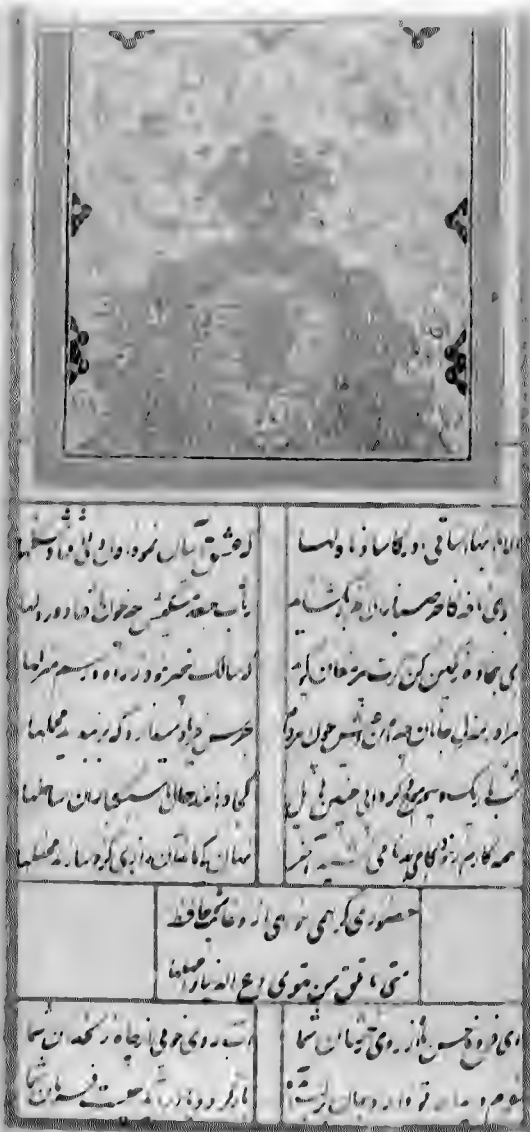 الا یا ایها الساقی ادر کاسا و ناولها که عشق آسان نمود اول ولی افتاد مشکلها
ببوی نافه کاخر صبا زان طره بکشاید ز تاب جعد مشکینش چه خون افتاد در دلها
بمی سجاده رنگین کن کرت پیر مغان کوید که سالک بیخبر نبود ز راه و رسم منزلها
مرا در منزل جانان چه امن عیش چون هردم جرس فریاد میدارد که بربندید محملها
شب تاریک و بیم موج و کردابی چنین هایل کجا دانند حال ما سبکباران ساحلها
همه کارم ز خود کامی ببدنامی کشید آخر نهان کی ماند آن رازی کزو سازند محفلها
حضوری کر همی خواهی ازو غایب مشو حافظ
متی ما تلق من تهوی دع الدنیا و اهملها
ای فروغ حسن ماه از روی رخشان شما آب روی خوبی از چاه زنخدان شما
عزم دیدار تو دارد جان بر لب آمده بازکردد یا برآید چیست فرمان شما